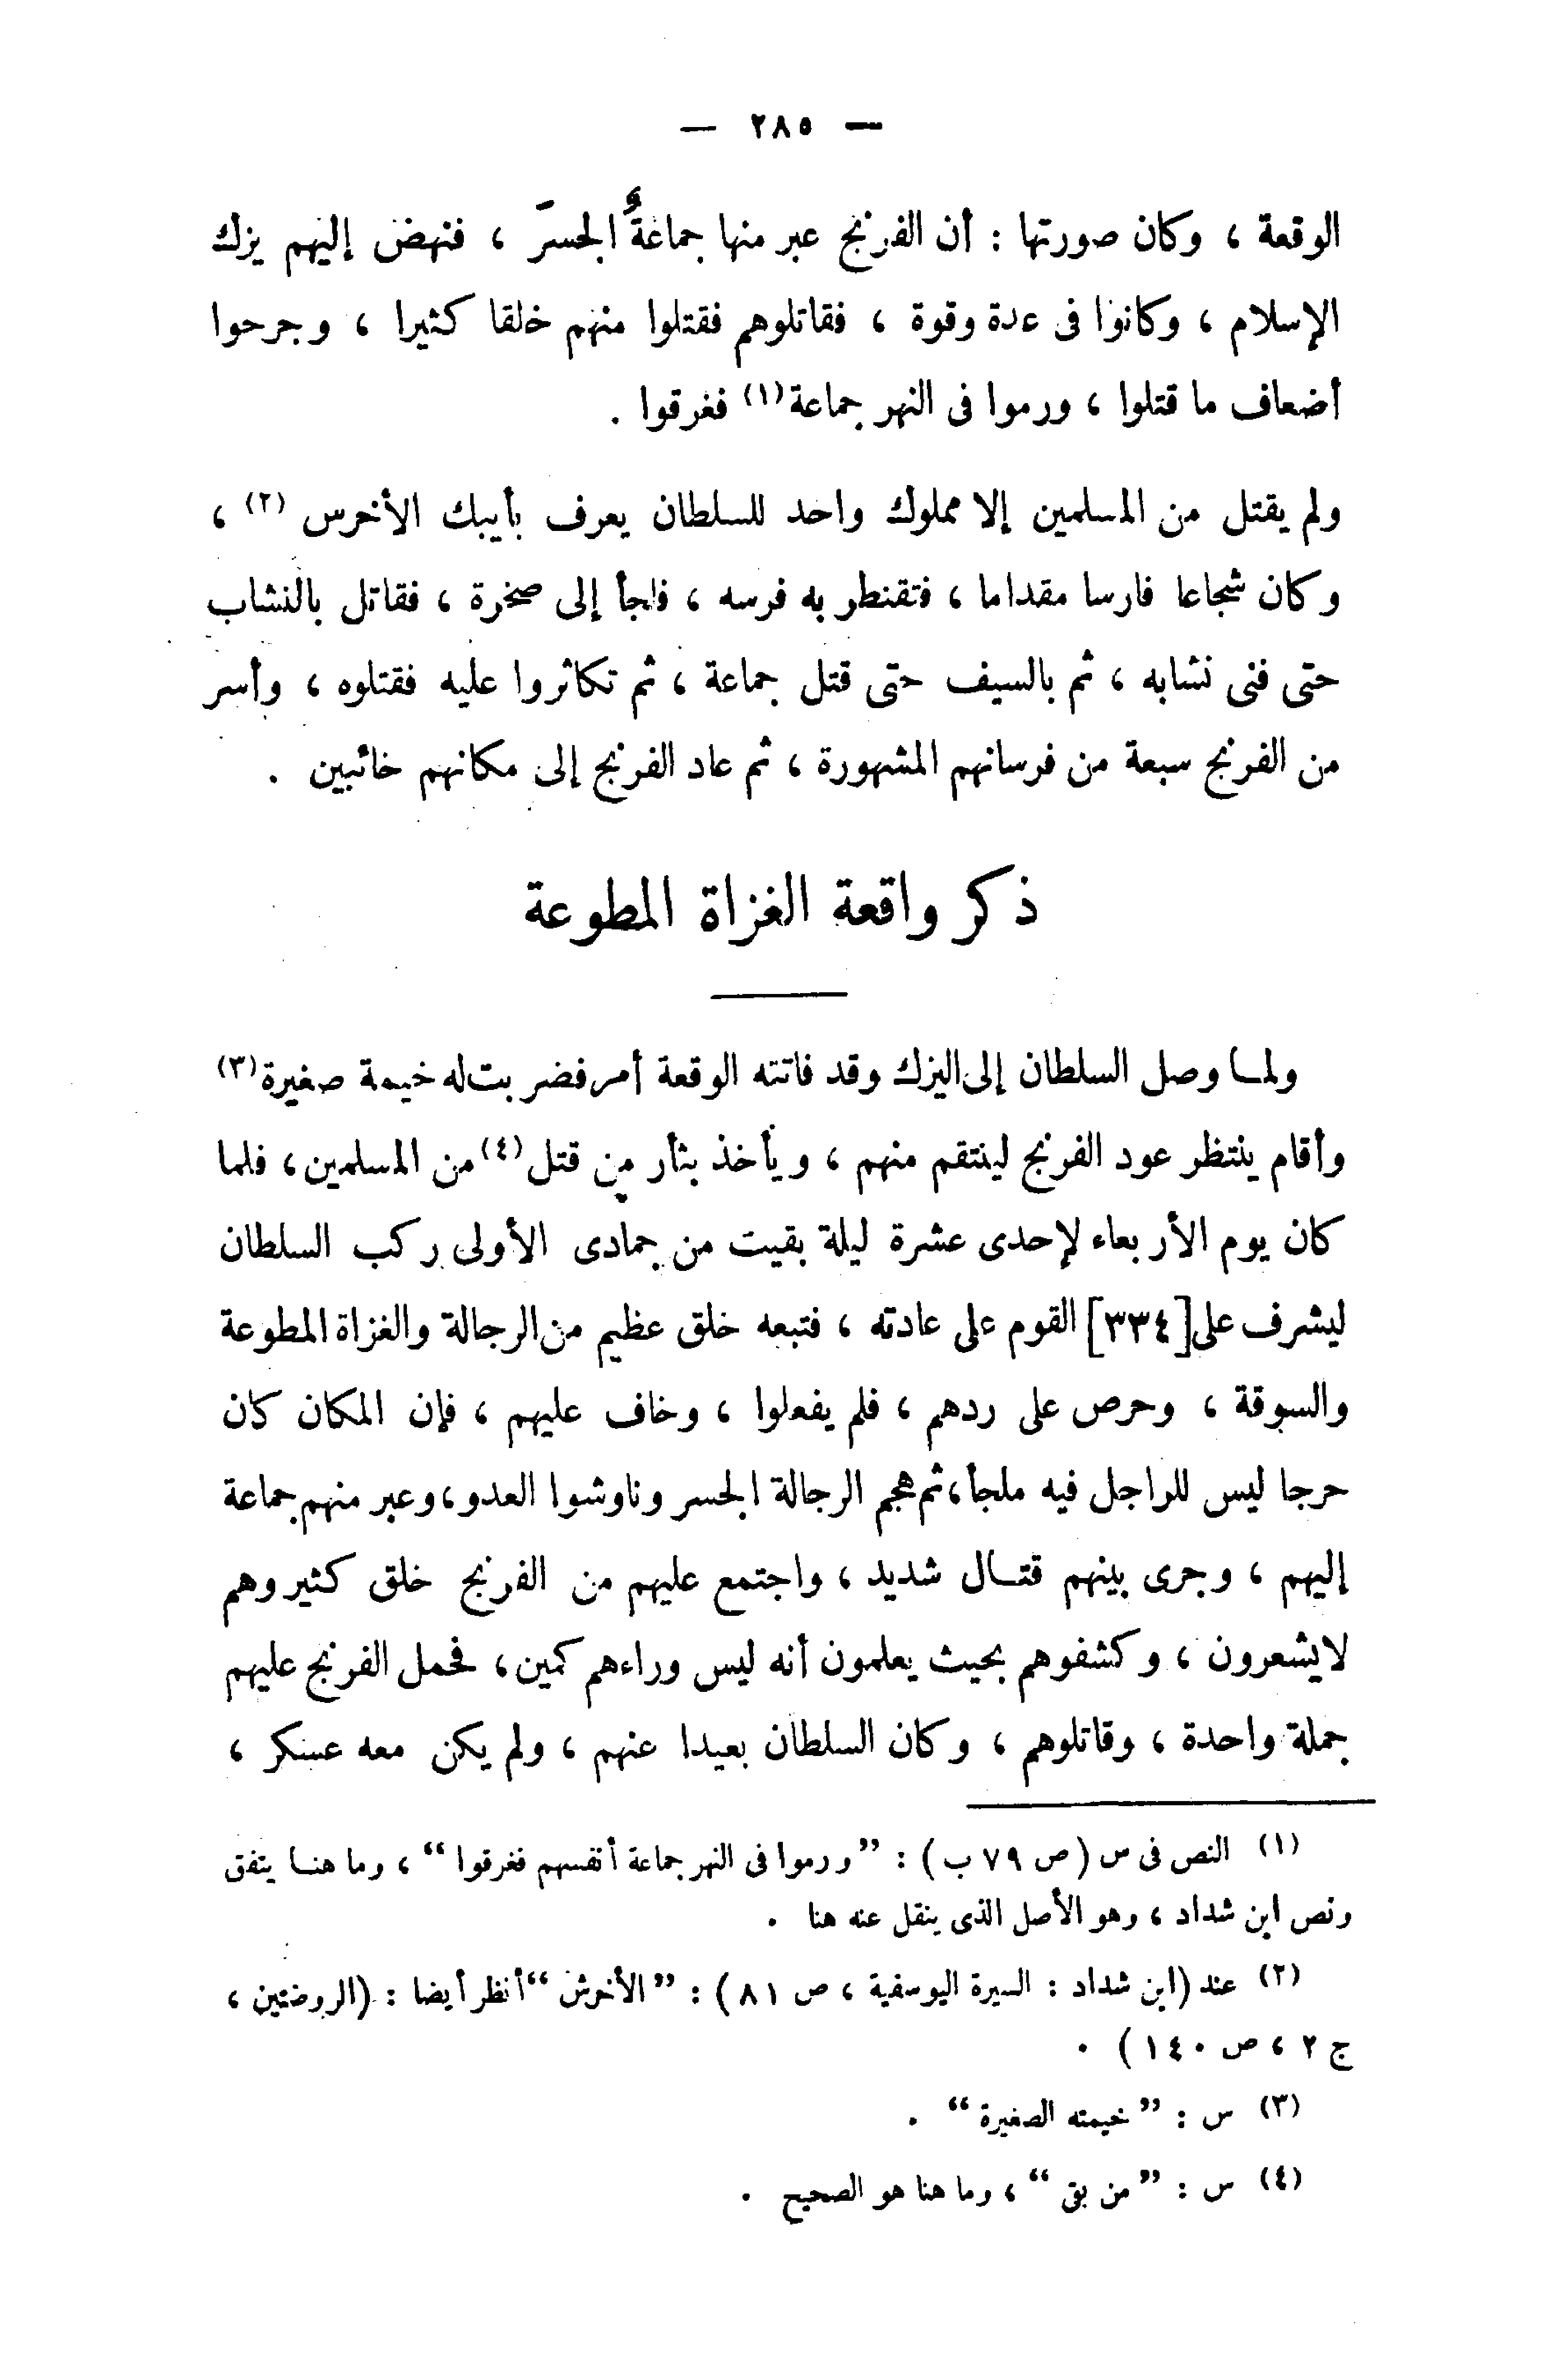 — ٢٨٥ —
الوقعة ، وكان صورتها : أن الفرنج عبر منها جماعةٌ الجسرَ ، فنهض إليهم يزك
الإسلام ، وكانوا فى عدة وقوة ، فقاتلوهم فقتلوا منهم خلقا كثيرا ، وجرحوا
أضعاف ما قتلوا ، ورموا فى النهر جماعة(١) فغرقوا .
ولم يقتل من المسلمين إلا مملوك واحد للسلطان يعرف بأيبك الأخرس (٢) ،
وكان شجاعا فارسا مقداما ، فتقنطر به فرسه ، فلجأ إلى صخرة ، فقاتل بالنشاب
حتى فنى نشابه ، ثم بالسيف حتى قتل جماعة ، ثم تكاثروا عليه فقتلوه ، وأسر
من الفرنج سبعة من فرسانهم المشهورة ، ثم عاد الفرنج إلى مكانهم خائبين .
ذكر واقعة الغزاة المطوعة
ولمـا وصل السلطان إلى اليزك وقد فاتته الوقعة أمر فضربت له خيمة صغيرة(٣)
وأقام ينتظر عود الفرنج لينتقم منهم ، ويأخذ بثأر من قتل(٤) من المسلمين ، فلما
كان يوم الأربعاء لإحدى عشرة ليلة بقيت من جمادى الأولى ركب السلطان
ليشرف على [٣٣٤] القوم على عادته ، فتبعه خلق عظيم من الرجالة والغزاة المطوعة
والسوقة ، وحرص على ردهم ، فلم يفعلوا ، وخاف عليهم ، فإن المكان كان
حرجا ليس للراجل فيه ملجأ ، ثم هجم الرجالة الجسر وناوشوا العدو ، وعبر منهم جماعة
إليهم ، وجرى بينهم قتـال شديد ، واجتمع عليهم من الفرنج خلق كثير وهم
لايشعرون ، وكشفوهم بحيث يعلمون أنه ليس وراءهم كمين ، فحمل الفرنج عليهم
جملة واحدة ، وقاتلوهم ، وكان السلطان بعيدا عنهم ، ولم يكن معه عسكر ،
(١) النص فى س (ص ٧٩ ب) : ”ورموا فى النهر جماعة أنفسهم فغرقوا“ ، وما هنـا يتفق
ونص ابن شداد ، وهو الأصل الذى ينقل عنه هنا .
(٢) عند (ابن شداد : السيرة اليوسفية ، ص ٨١) : ”الأخرش“ أنظر أيضا : (الروضتين ،
ج ٢ ، ص ١٤٠) .
(٣) س : ”خيمته الصغيرة“ .
(٤) س : ”من بقى“ ، وما هنا هو الصحيح .